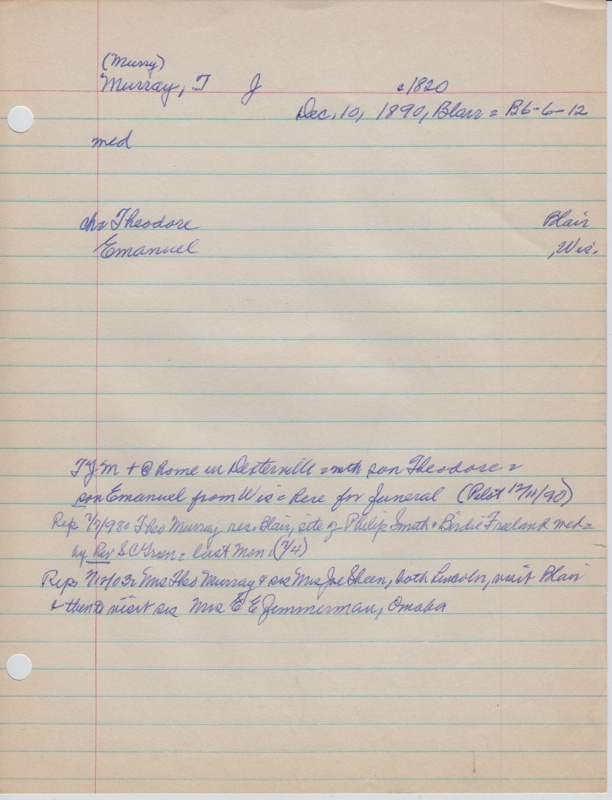 (Murry)
Murray, T J c1820
Dec. 10, 1890, Blair = B6-6-12
med
chr Theodore Blair
Emanuel , Wis.
TJM + @ home in Dexterville = with son Theodore =
son Emanuel from Wis = here for funeral (Pilot 12/11/90)
Rep 7/7/98 = Theo Murray res. Blair, site of Philip Smith + Birdie Freeland med =
by Rev S C Green = last Mon. (7/4)
Rep: Mrs Theo Murray + sis Mrs Joe Sheen, both Lincoln, visit Blair
+ then visit sis Mrs E E Zimmerman, Omaha